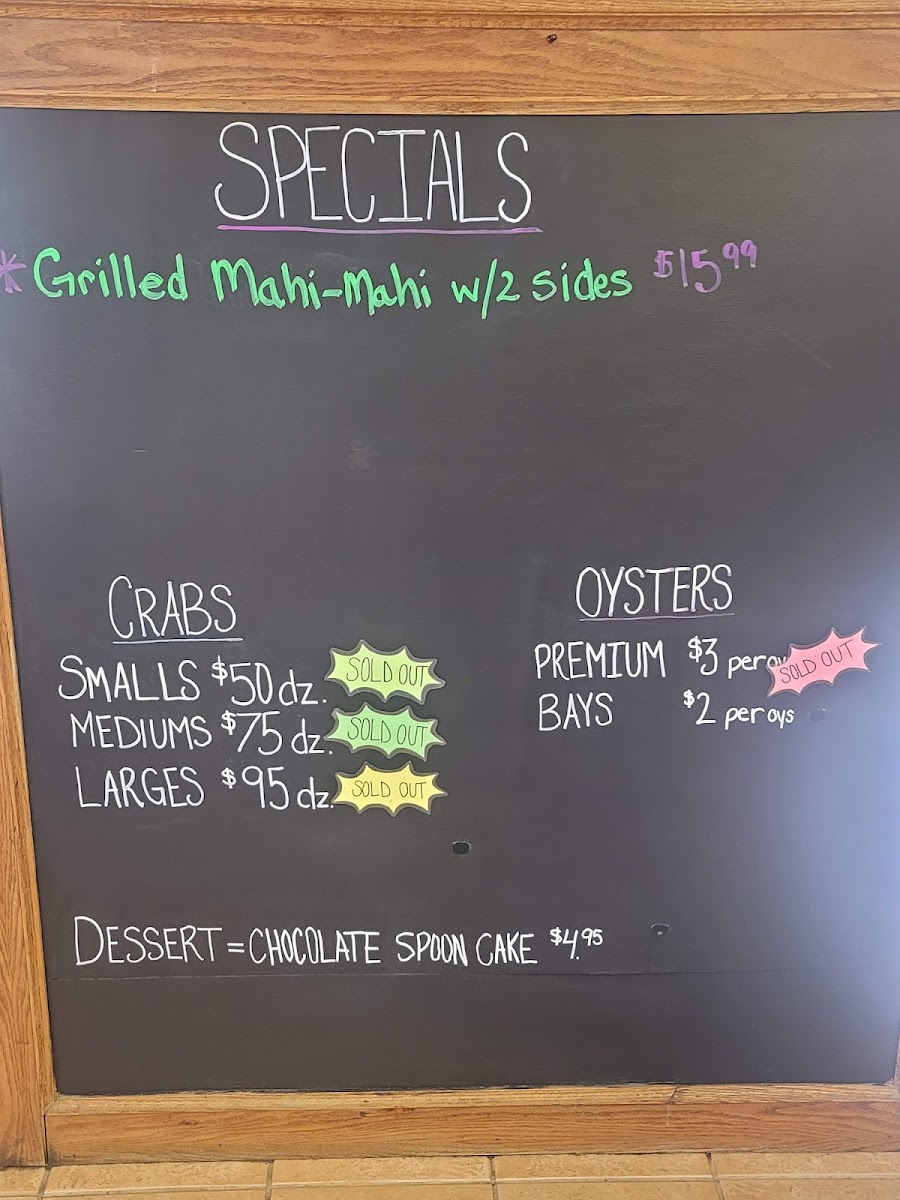 SPECIALS
*Grilled Mahi-Mahi w/2 sides $15.99
CRABS
SMALLS $50 dz. SOLD OUT
MEDIUMS $75 dz. SOLD OUT
LARGES $95 dz. SOLD OUT
OYSTERS
PREMIUM $3 per oy SOLD OUT
BAYS $2 per oys
DESSERT = CHOCOLATE SPOON CAKE $4.95